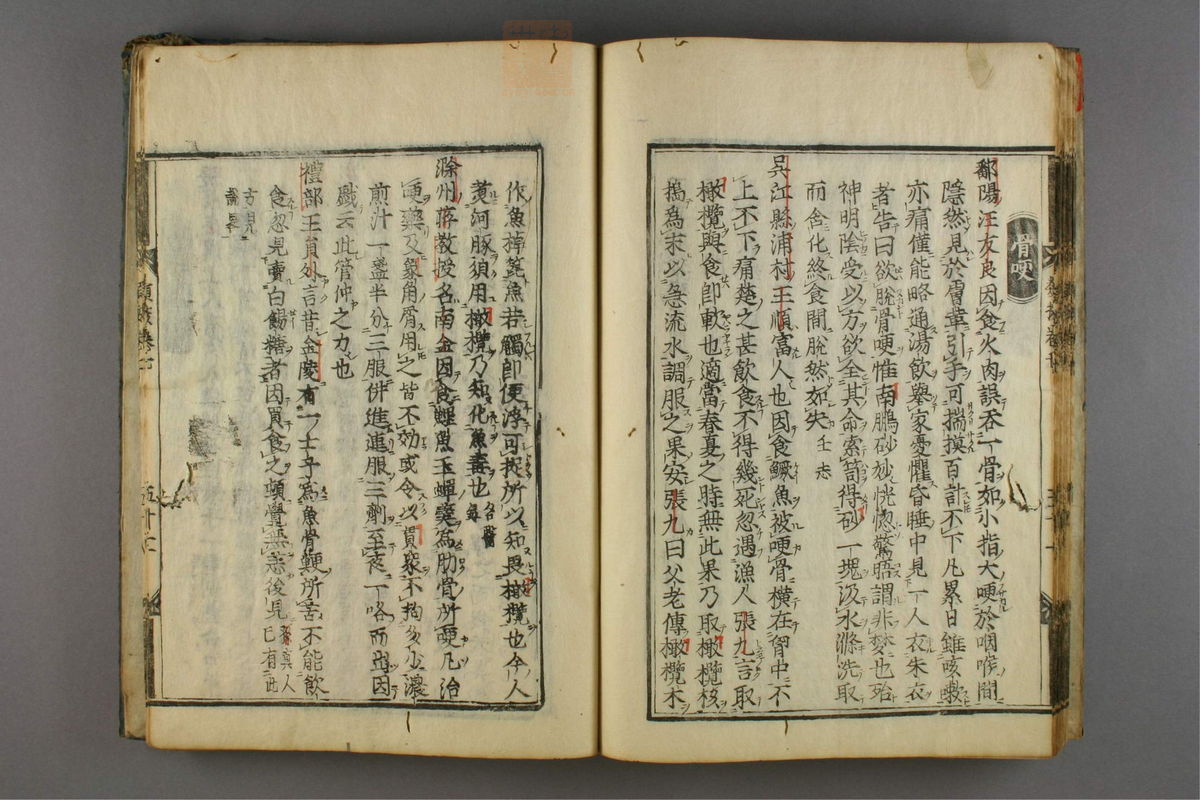 骨哽
鄱陽汪友良因食火肉誤吞一骨如小指大哽於咽喉間
隱然見於膚革引手可揣摸百計不下凡累日雖咳嗽
亦痛僅能略通湯飲舉家憂懼昏睡中見一人衣朱衣
者告曰欲脫骨哽惟南鵬砂妙恍惚驚晤謂非夢也殆
神明陰受以方欲全其命索笥得砂一塊汲水滌洗取
而含化終食間脫然如失 壬志
吳江縣浦村王順富人也因食鱖魚被哽骨橫在胷中不
上不下痛楚之甚飲食不得幾死忽遇漁人張九言取
橄欖與食即軟也適當春夏之時無此果乃取橄欖核
搗為末以急流水調服之果安張九曰父老傳橄欖木
作魚棹篦魚若觸即便浮可捉所以知畏橄欖也今人
煑河豚須用橄欖乃知化魚毒也 名醫錄
滁州蔣教授名南金因食鯉魚玉蟬羹為肋骨所哽凡治
哽藥及象角屑用之皆不効或令以貫衆不拘多少濃
煎汁一盞半分三服併進連服三劑至夜一咯而出因
戲云此管仲之力也
禮部王員外言昔金陵有一士子為魚骨鯁所苦不能飲
食忽見賣白餳糖者因買食之頓覺無恙後見孫真人已有此
方見